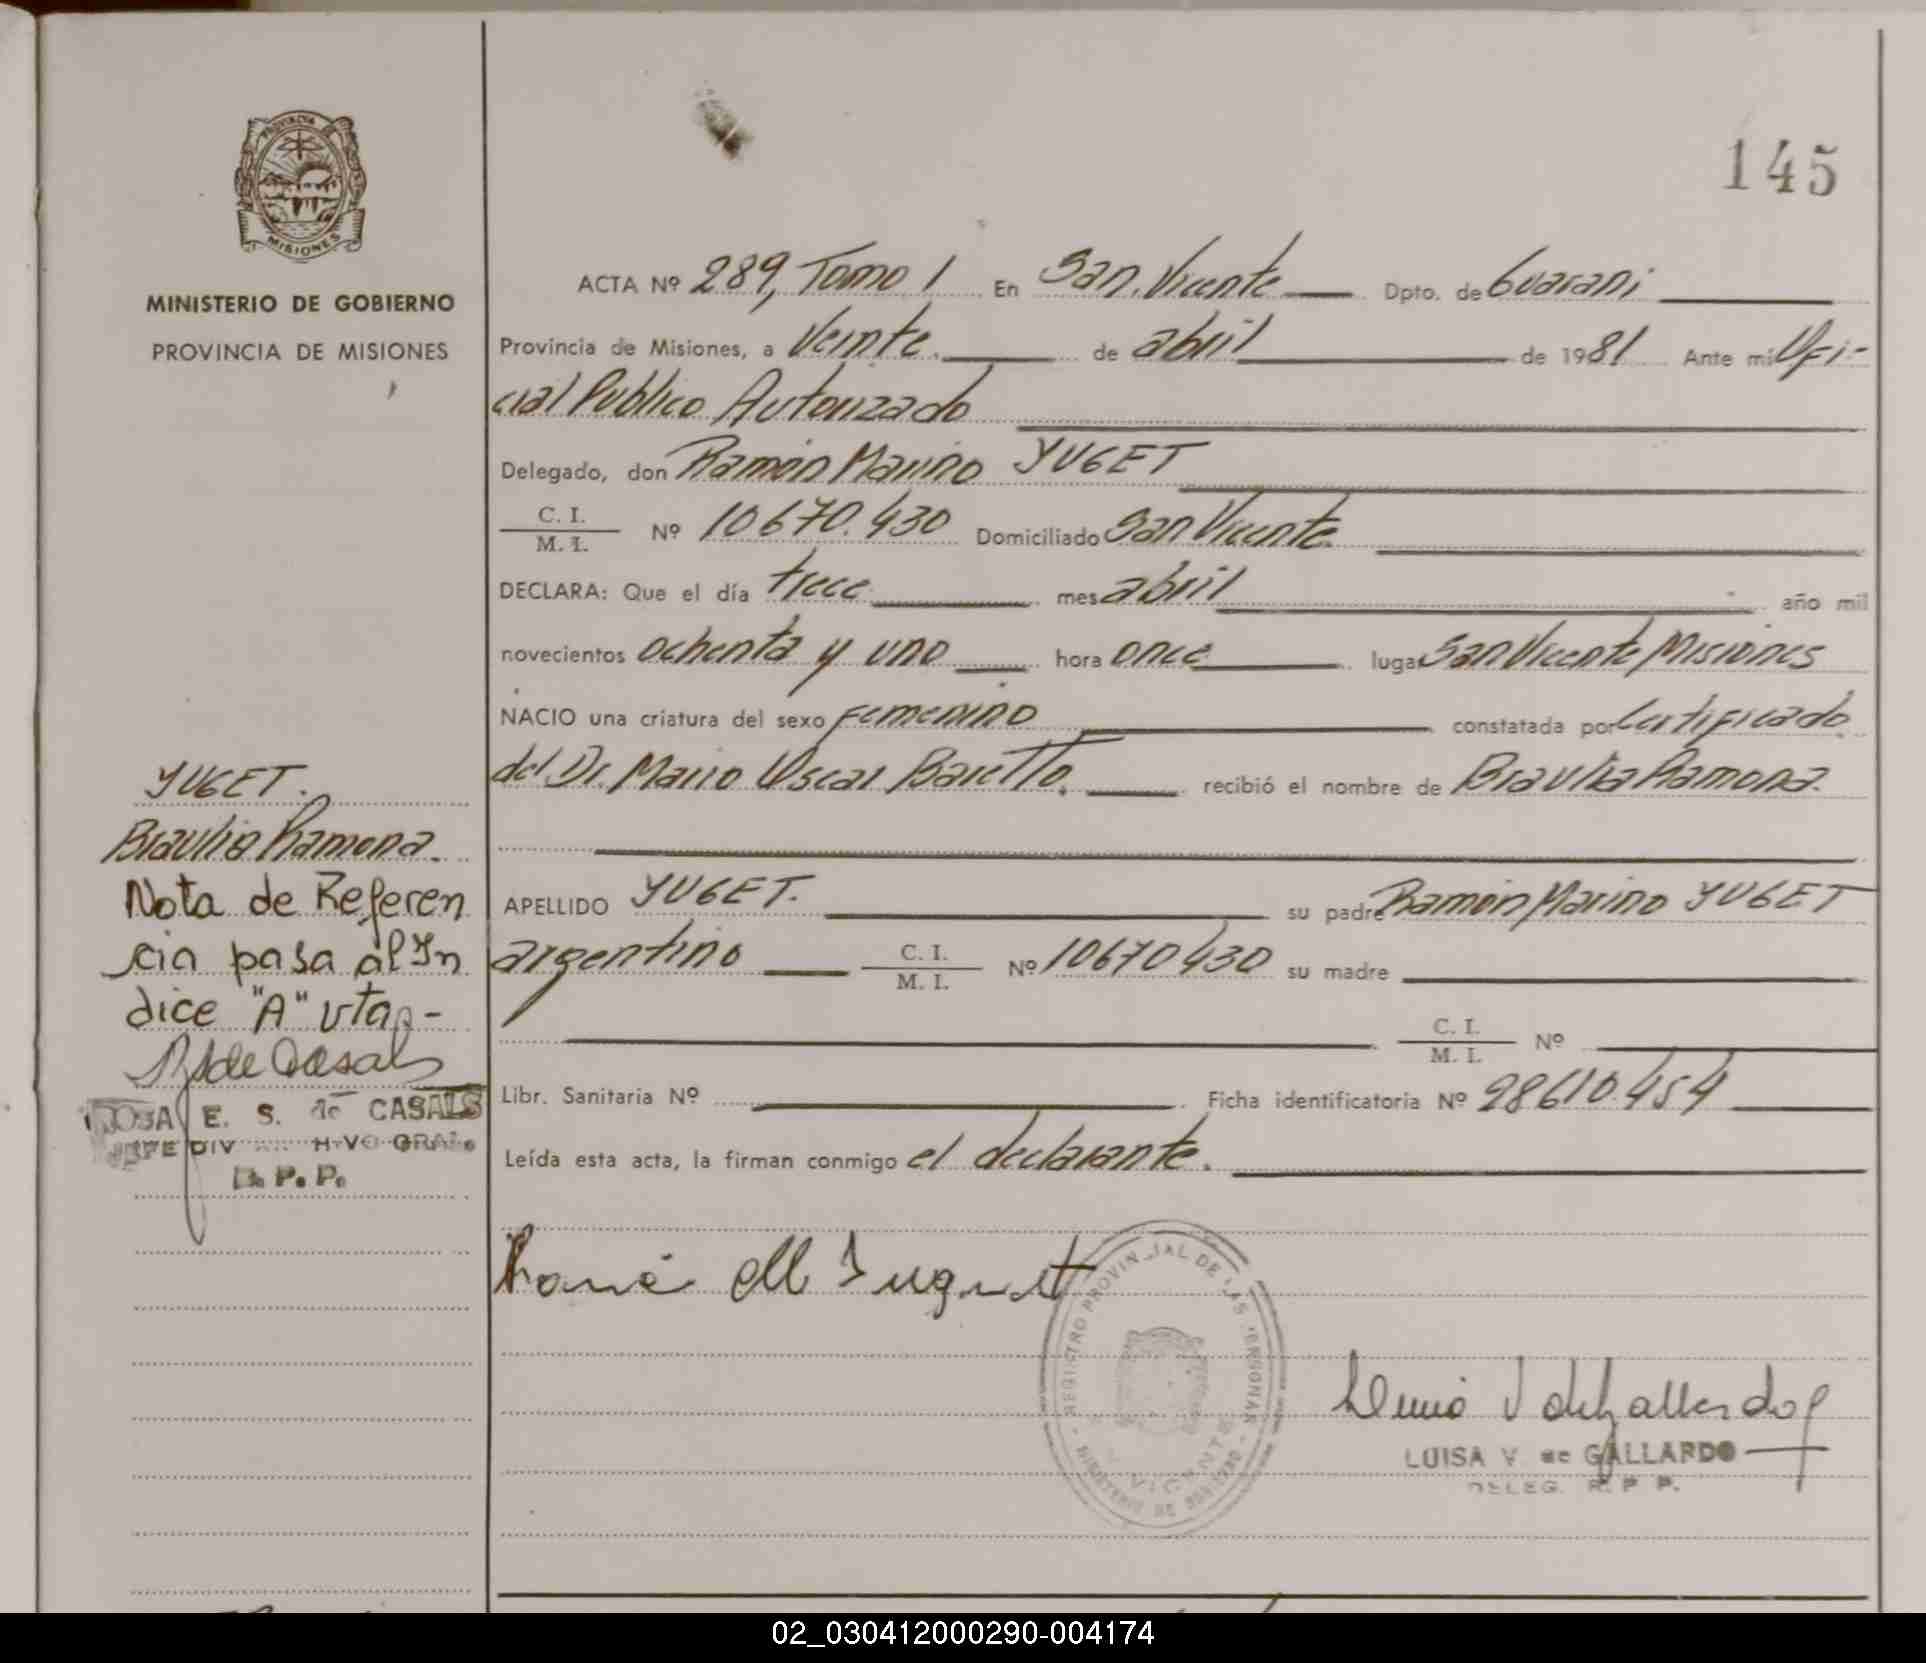 PROVINCIA DE
MISIONES
MINISTERIO DE GOBIERNO
PROVINCIA DE MISIONES
145
ACTA Nº 289, Tomo I En San Vicente Dpto. de Guarani
Provincia de Misiones, a Veinte. de abril de 1981 Ante mi Ofi-
cial Publico Autorizado
Delegado, don Ramón Marino YUGET
C. I.
M. I. Nº 10670.430 Domiciliado San Vicente
DECLARA: Que el día trece mes abril año mil
novecientos ochenta y uno hora once lugar San Vicente Misiones
NACIO una criatura del sexo Femenino constatada por Certificado
del Dr. Mario Oscar Baretto. recibió el nombre de Braulia Ramona.
APELLIDO YUGET. su padre Ramón Marino YUGET
argentino C. I.
M. I. Nº 10670430 su madre
C. I.
M. I. Nº
Libr. Sanitaria Nº Ficha identificatoria Nº 28610.454
Leída esta acta, la firman conmigo el declarante.
YUGET.
Braulia Ramona.
Nota de Referen
cia pasa al In
dice "A" vta.-
R S de Casals
ROSA E. S. de CASALS
JEFE DIV GRAL.
R. P. P.
REGISTRO PROVINCIAL DE LAS PERSONAS
MINISTERIO DE GOBIERNO
VICENTE
LUISA V. de GALLARDO
DELEG. R. P. P.
02_030412000290-004174